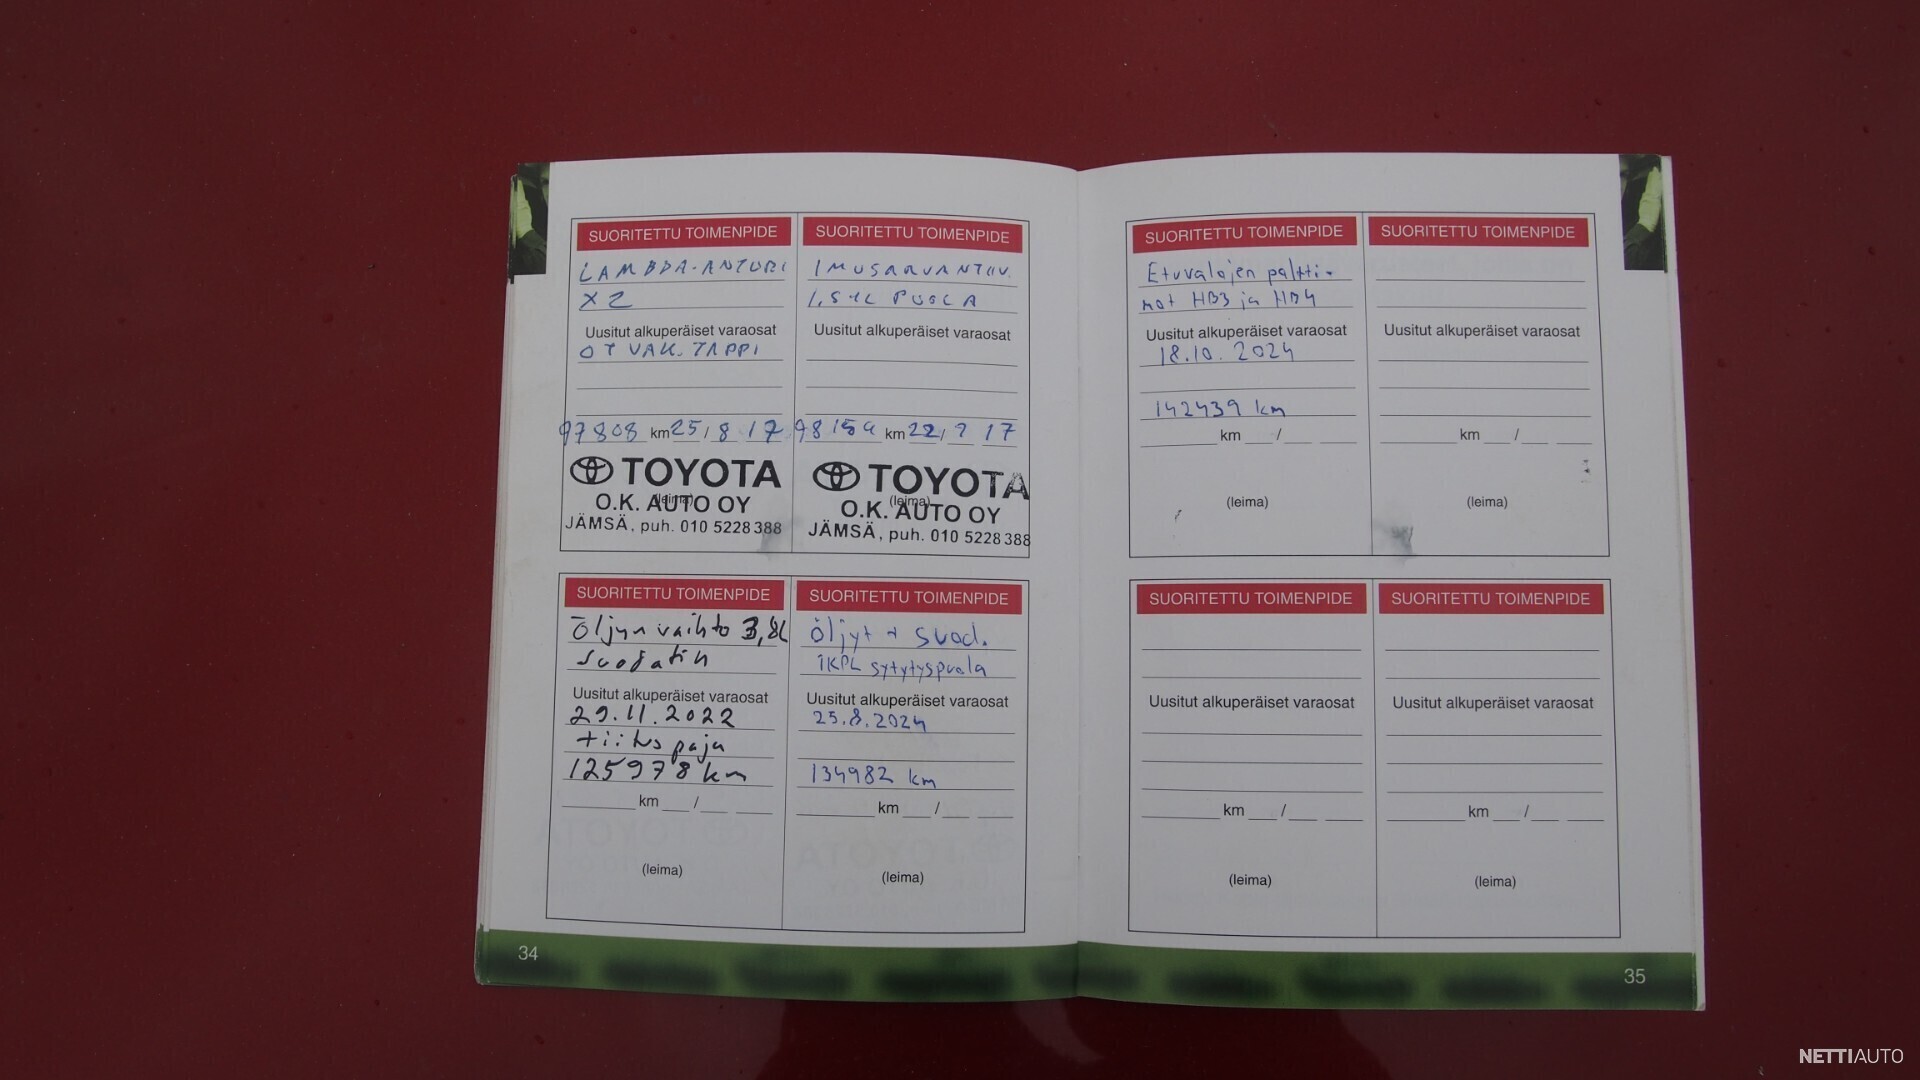 SUORITETTU TOIMENPIDE
LAMBDA-ANTURI
X2
Uusitut alkuperäiset varaosat
OT VAK. TAPPI
97808 km 25/8 17
TOYOTA
(leima)
O.K. AUTO OY
JÄMSÄ, puh. 010 5228 388
SUORITETTU TOIMENPIDE
IMUSARVANTIIV.
Uusitut alkuperäiset varaosat
km 22/ 17
TOYOTA
(leima)
O.K. AUTO OY
JÄMSÄ, puh. 010 5228 388
SUORITETTU TOIMENPIDE
Öljyn vaihto 3,8L
suodatin
Uusitut alkuperäiset varaosat
29.11.2022
paja
125978 km
km /
(leima)
SUORITETTU TOIMENPIDE
Öljyt + suod.
1KPL sytytyspuola
Uusitut alkuperäiset varaosat
25.8.2024
134982 km
km /
(leima)
34
SUORITETTU TOIMENPIDE
Etuvalojen poltti-
mot HB3 ja HB4
Uusitut alkuperäiset varaosat
18.10.2024
142439 km
km /
(leima)
SUORITETTU TOIMENPIDE
Uusitut alkuperäiset varaosat
km /
(leima)
SUORITETTU TOIMENPIDE
Uusitut alkuperäiset varaosat
km /
(leima)
SUORITETTU TOIMENPIDE
Uusitut alkuperäiset varaosat
km /
(leima)
35
NETTIAUTO